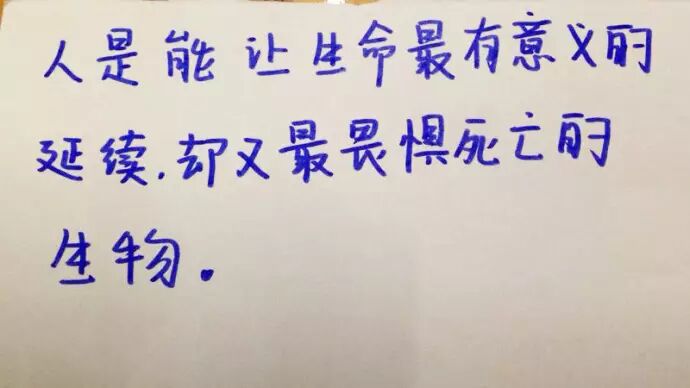 人是能让生命最有意义的
延续,却又最畏惧死亡的
生物。